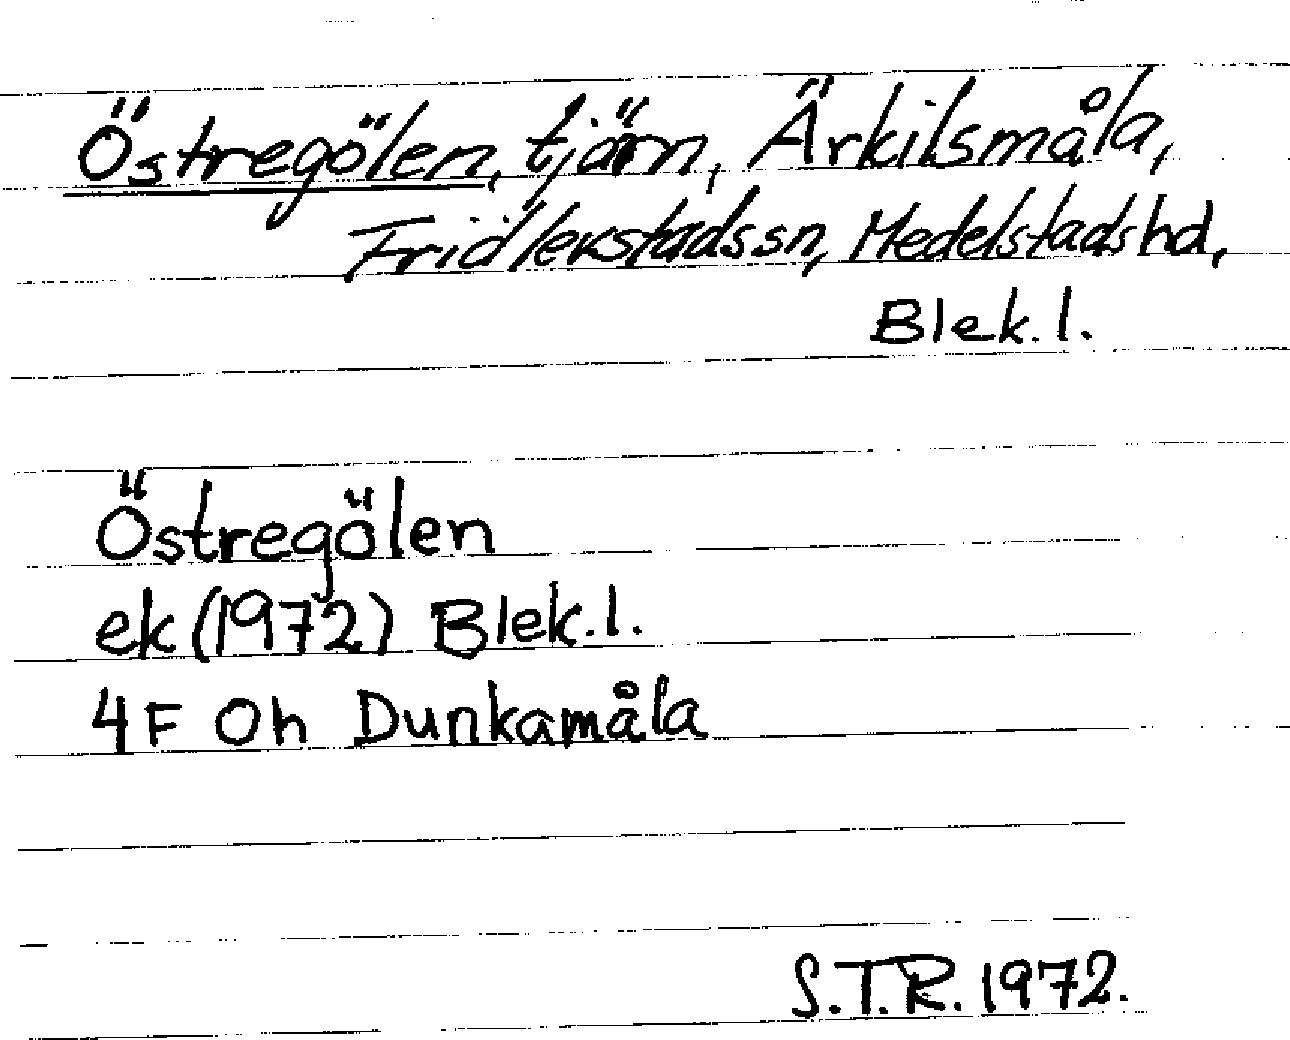 Östregölen, tjärn, Ärkilsmåla,
Fridlevstadssn, Medelstadshd,
Blek. l.
Östregölen
ek (1972) Blek. l.
4F Oh Dunkamåla
S.T.R. 1972.